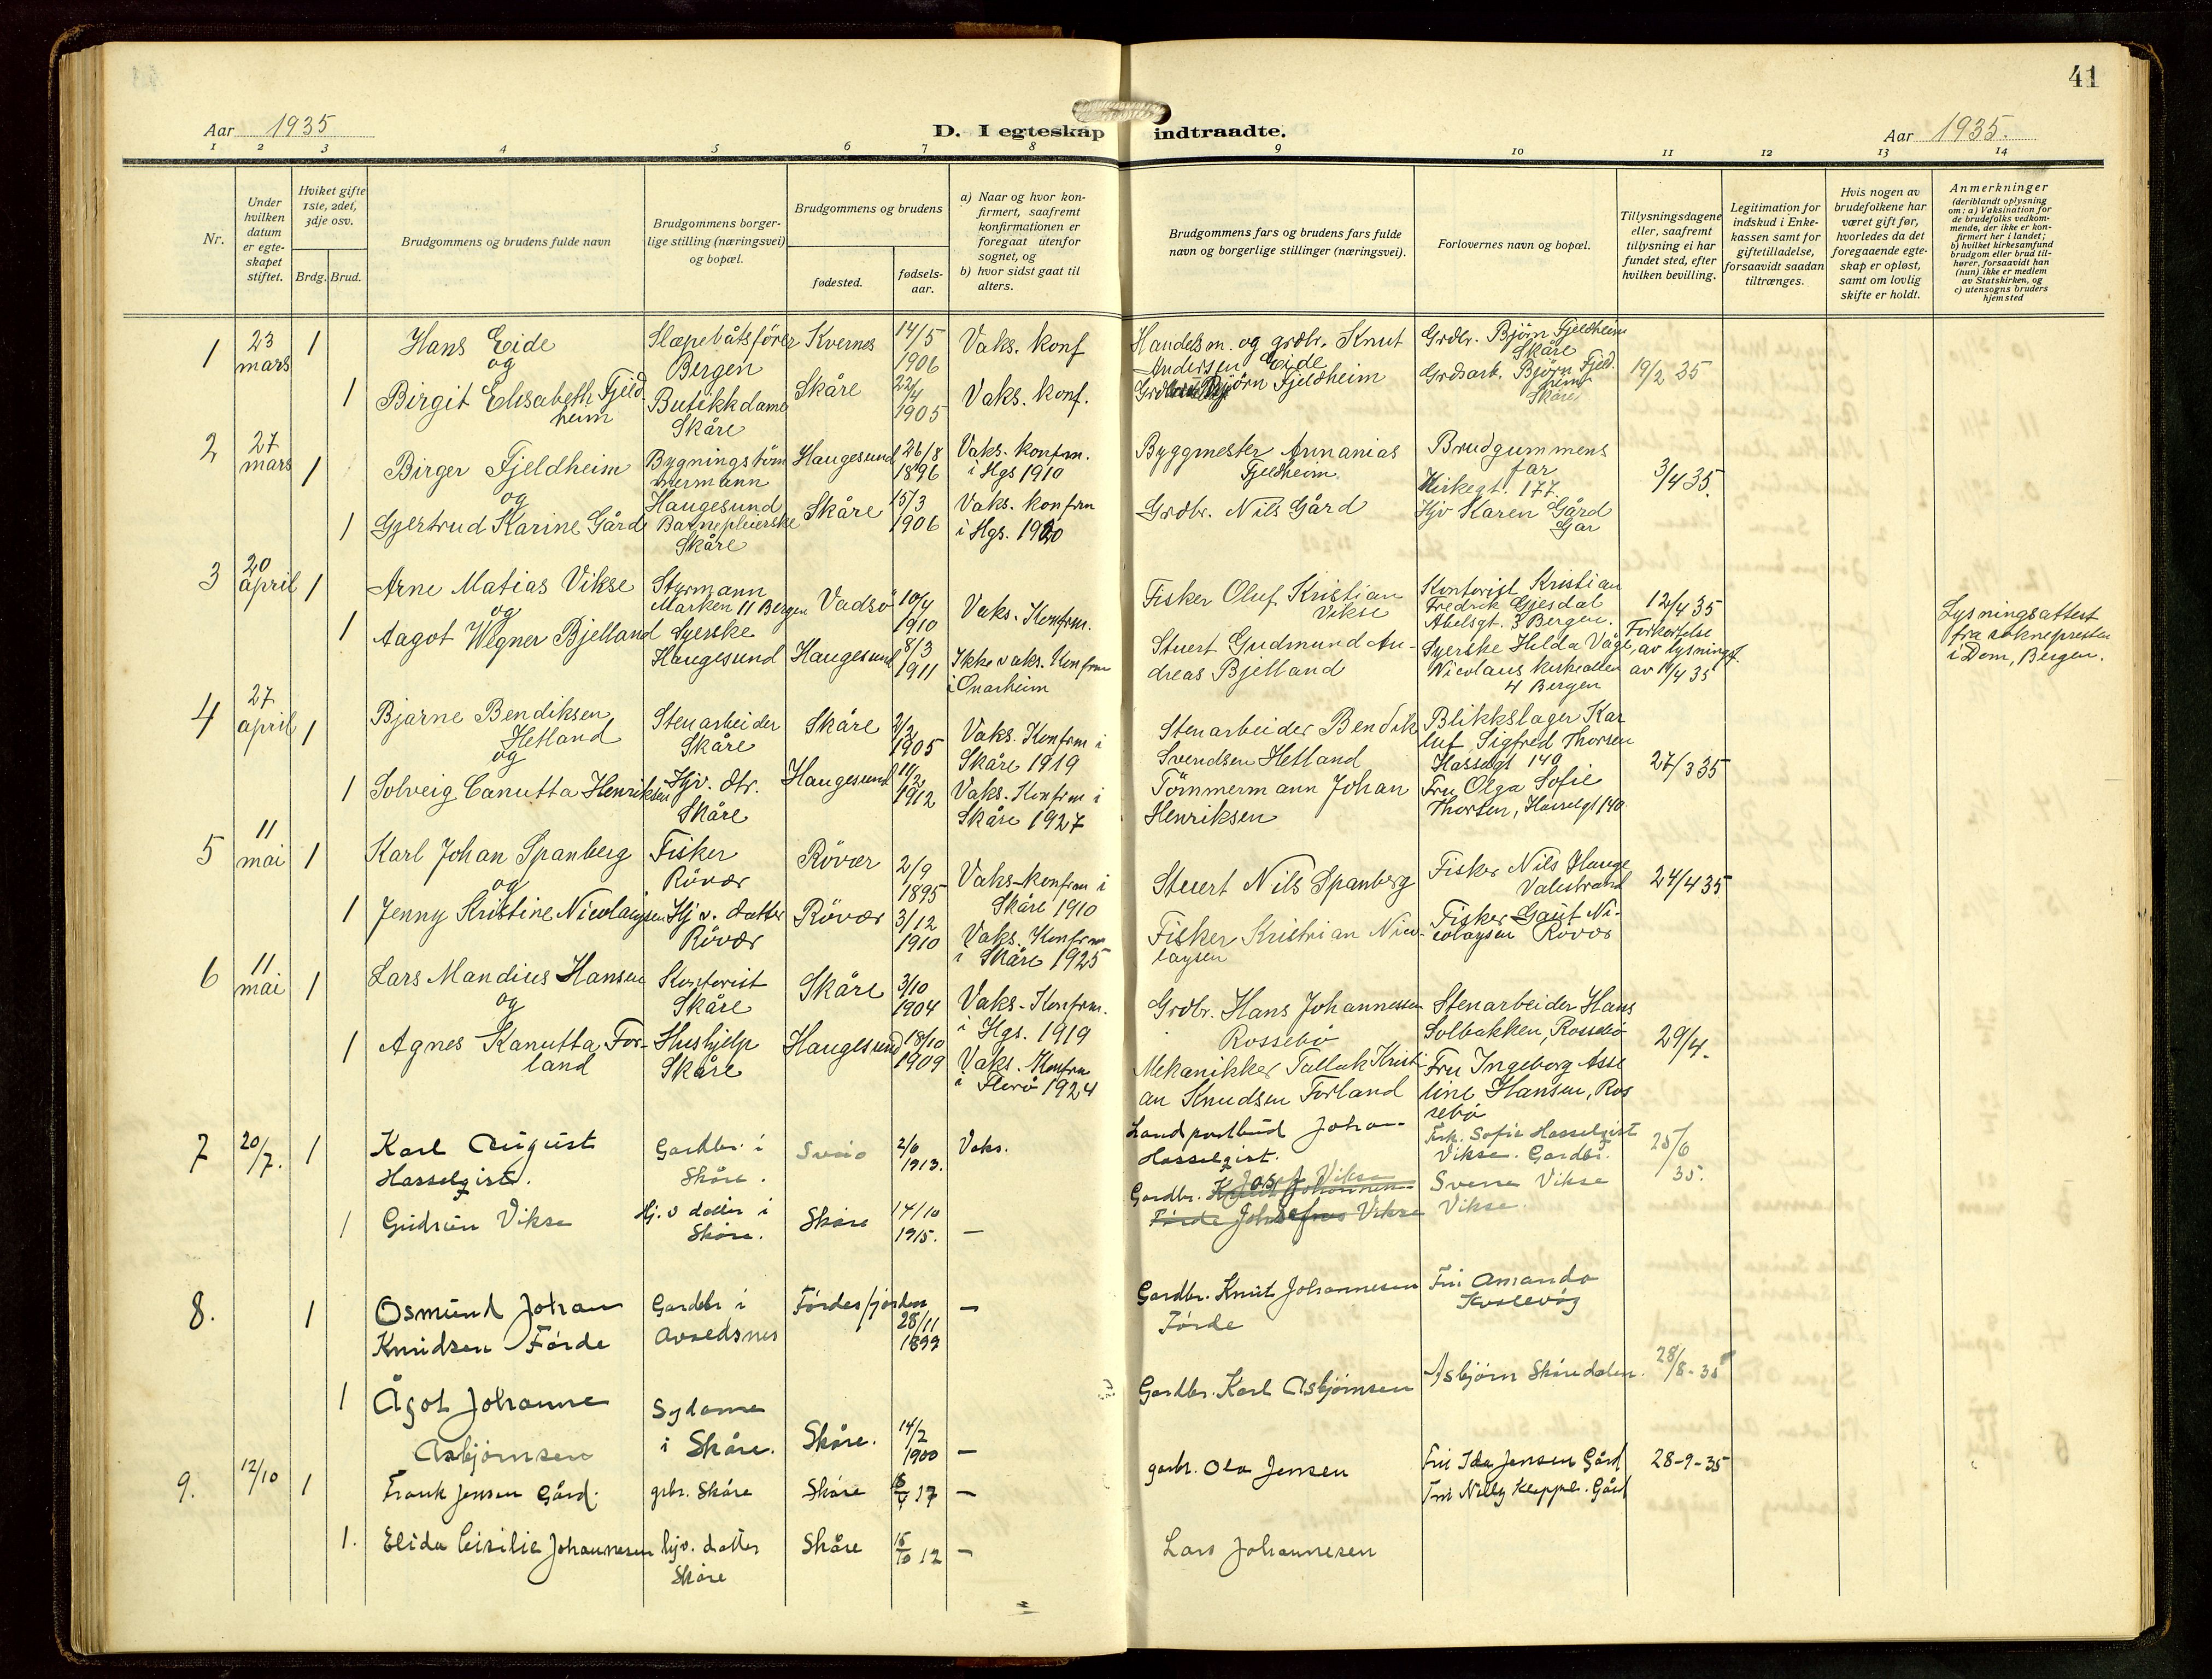 41
Aar 1935
D. I egteskap indtraadte.
Aar 1935.
1 2 3 4 5 6 7 8 9 10 11 12 13 14
Nr.
Under hvilken datum er egteskapet stiftet.
Hviket gifte 1ste, 2det, 3dje osv.
Brdg. Brud.
Brudgommens og brudens fulde navn
Brudgommens borgerlige stilling (næringsvei) og bopæl.
Brudgommens og brudens
fødested.
fødselsaar.
a) Naar og hvor konfirmert, saafremt konfirmationen er foregaat utenfor sognet, og
b) hvor sidst gaat til alters.
Brudgommens fars og brudens fars fulde navn og borgerlige stillinger (næringsvei).
Forlovernes navn og bopæl.
Tillysningsdagene eller, saafremt tillysning ei har fundet sted, efter hvilken bevilling.
Legitimation for indskud i Enkekassen samt for giftetilladelse, forsaavidt saadan tiltrænges.
Hvis nogen av brudefolkene har været gift før, hvorledes da det foregaaende egteskap er opløst, samt om lovlig skifte er holdt.
Anmerkninger (deriblandt oplysning om: a) Vaksination for de brudefolks vedkommende, der ikke er konfirmert her i landet; b) hvilket kirkesamfund brudgom eller brud tilhører, forsaavidt han (hun) ikke er medlem av Statskirken, og c) utensogns bruders hjemsted
1 23 mars 1 Hans Eide Slæpebåtsförer Bergen Kvernes 14/5 1906 Vaks. konf Handelsm. og grdbr. Knut Andersen Eide Grdbr. Björn Fjeldheim Skåre 19/2 35
og
1 Birgit Elisabeth Fjeldheim Butikkdame Skåre Skåre 22/4 1905 Vaks. konf. Björn Fjeldheim Grdsarb. Björn Fjeldheim Skåre
2 27 mars 1 Birger Fjeldheim Bygningstömmermann Haugesund Haugesund 26/8 1896 Vaks. konfrm. i Hgs 1910 Byggmester Annanias Fjeldheim. Brudgummens far Kirkegt. 177. 3/4 35.
og
1 Gjertrud Karine Gård Barnepleierske Skåre Skåre 15/3 1906 Vaks. konfrm i Hgs. 1920 Grdbr. Nils Gård Hjv Karen Gård Gar
3 20 april 1 Arne Matias Vikse Styrmann Marken 11 Bergen Vadsö 10/4 1910 Vaks. Konfrm. Fisker Oluf Kristian Vikse Kontorist Kristian Fredrik Gjesdal Abelsgt. 3 Bergen. 12/4 35
og
1 Aagot Wegner Bjelland Syerske Haugesund Haugesund 8/3 1911 Ikke vaks. Konfrm i Onarheim Stuert Gudmund Andreas Bjelland Syerske Hilda Våge, Nicolaus kirkeallm 4 Bergen Forkortelse av lysningsf. av 14/4 35
Lysningsattest fra soknepresten i Dom, Bergen.
4 27 april 1 Bjarne Bendiksen Hetland Stenarbeider Skåre Skåre 2/2 1905 Vaks. Konfrm i Skåre 1919 Stenarbeider Bendik Svendsen Hetland Blikkslager Karluf Sigfred Thorsen Hasselgt 140 27/3 35
og
1 Solveig Canutta Henriksen Hjv. dtr. Skåre Haugesund 11/2 1912 Vaks. Konfrm i Skåre 1927 Tömmermann Johan Henriksen Fru Olga Sofie Thorsen, Hasselgt 140
5 11 mai 1 Karl Johan Spanberg Fisker Rövær Rövær 2/9 1895 Vaks-konfrm i Skåre 1910 Stuert Nils Spanberg Fisker Nils Hauge Valestrand 24/4 35
og
1 Jenny Kristine Nicolaysen Hjv. datter Rövær Rövær 3/12 1910 Vaks. Konfrm i Skåre 1925 Fisker Kristian Nicolaysen Fisker Gaut Nicolaysen Rövær
6 11 mai 1 Lars Mandius Hansen Kontorist Skåre Skåre 3/10 1904 Vaks. Konfrm. i Hgs. 1919 Grdbr. Hans Johannessen Rossebö Stenarbeider Hans Solbakken, Rossebö 29/4.
og
1 Agnes Kanutta Forland Hushjelp Skåre Haugesund 18/10 1909 Vaks. Konfrm i Florö 1924 Mekanikker Tallak Kristian Knudsen Forland Fru Ingeborg Asseline Hansen, Rossebö
7 20/7. 1 Karl August Hasselqist. Gardbr. i Skåre. Sveio 2/6 1913. Vaks. Landpostbud Johan Hasselqist. Frk. Sofie Hasselqist Vikse. Gardbr. 25/6 35.
1 Gudrun Vikse Hj.v datter i Skåre. Skåre 14/10 1915. — Gardbr. Josef Vikse Sverre Vikse Vikse.
8. 1 Osmund Johan Knudsen Förde Gardbr i Avaldsnes Fördesfjorden 28/11 1899 — Gardbr. Knut Johannesen Förde Fru Amanda Kvalevåg
1 Ågot Johanne Asbjörnsen Sydame i Skåre. Skåre. 14/2 1900 — Gardbr. Karl Asbjörnsen Asbjörn Skåredalen. 28/8-35
9. 12/10 1 Frank Jensen Gård. grbr. Skåre Skåre 17 — garbr. Ola Jensen Fru Ida Jensen Gård Fru Nelly Kleppe. Gård 28-9-35
1. Elida Cisilie Johannesen hjv. datter Skåre Skåre 15/10 12 — Lars Johannesen